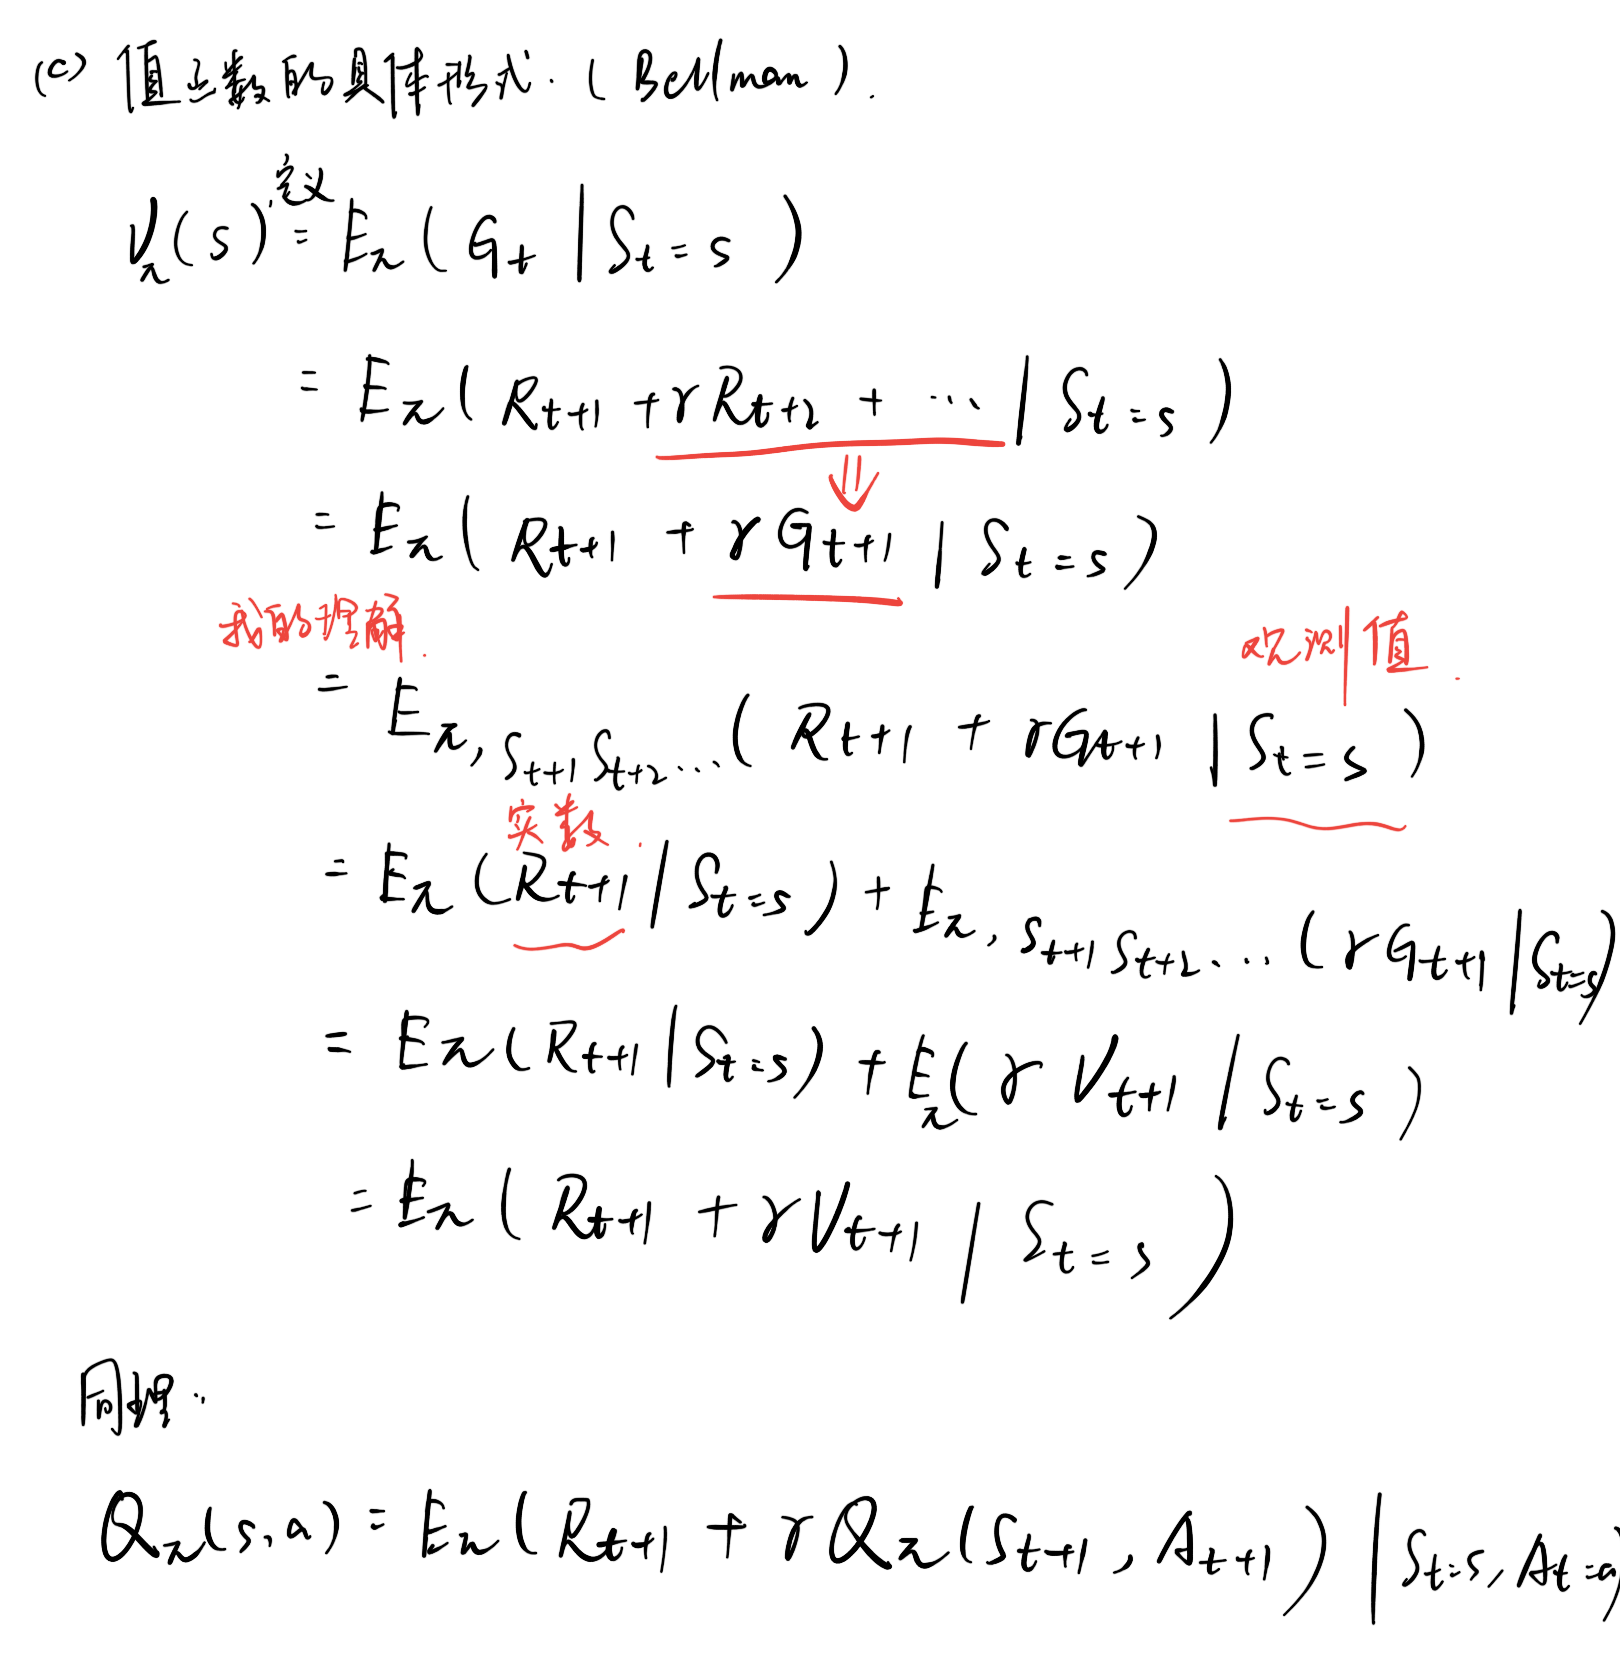 (c) 值函数的具体形式. (Bellman).
定义
V_π(s) = E_π(G_t | S_t = s)
= E_π(R_{t+1} + γR_{t+2} + ... | S_t = s)
⇓
= E_π(R_{t+1} + γG_{t+1} | S_t = s)
我的理解. 观测值.
= E_{π, S_{t+1} S_{t+2}...}(R_{t+1} + γG_{t+1} | S_t = s)
实数.
= E_π(R_{t+1} | S_t = s) + E_{π, S_{t+1} S_{t+2}...}(γG_{t+1} | S_t = s)
= E_π(R_{t+1} | S_t = s) + E_π(γV_{t+1} | S_t = s)
= E_π(R_{t+1} + γV_{t+1} | S_t = s)
同理:
Q_π(s, a) = E_π(R_{t+1} + γQ_π(S_{t+1}, A_{t+1}) | S_t = s, A_t = a)